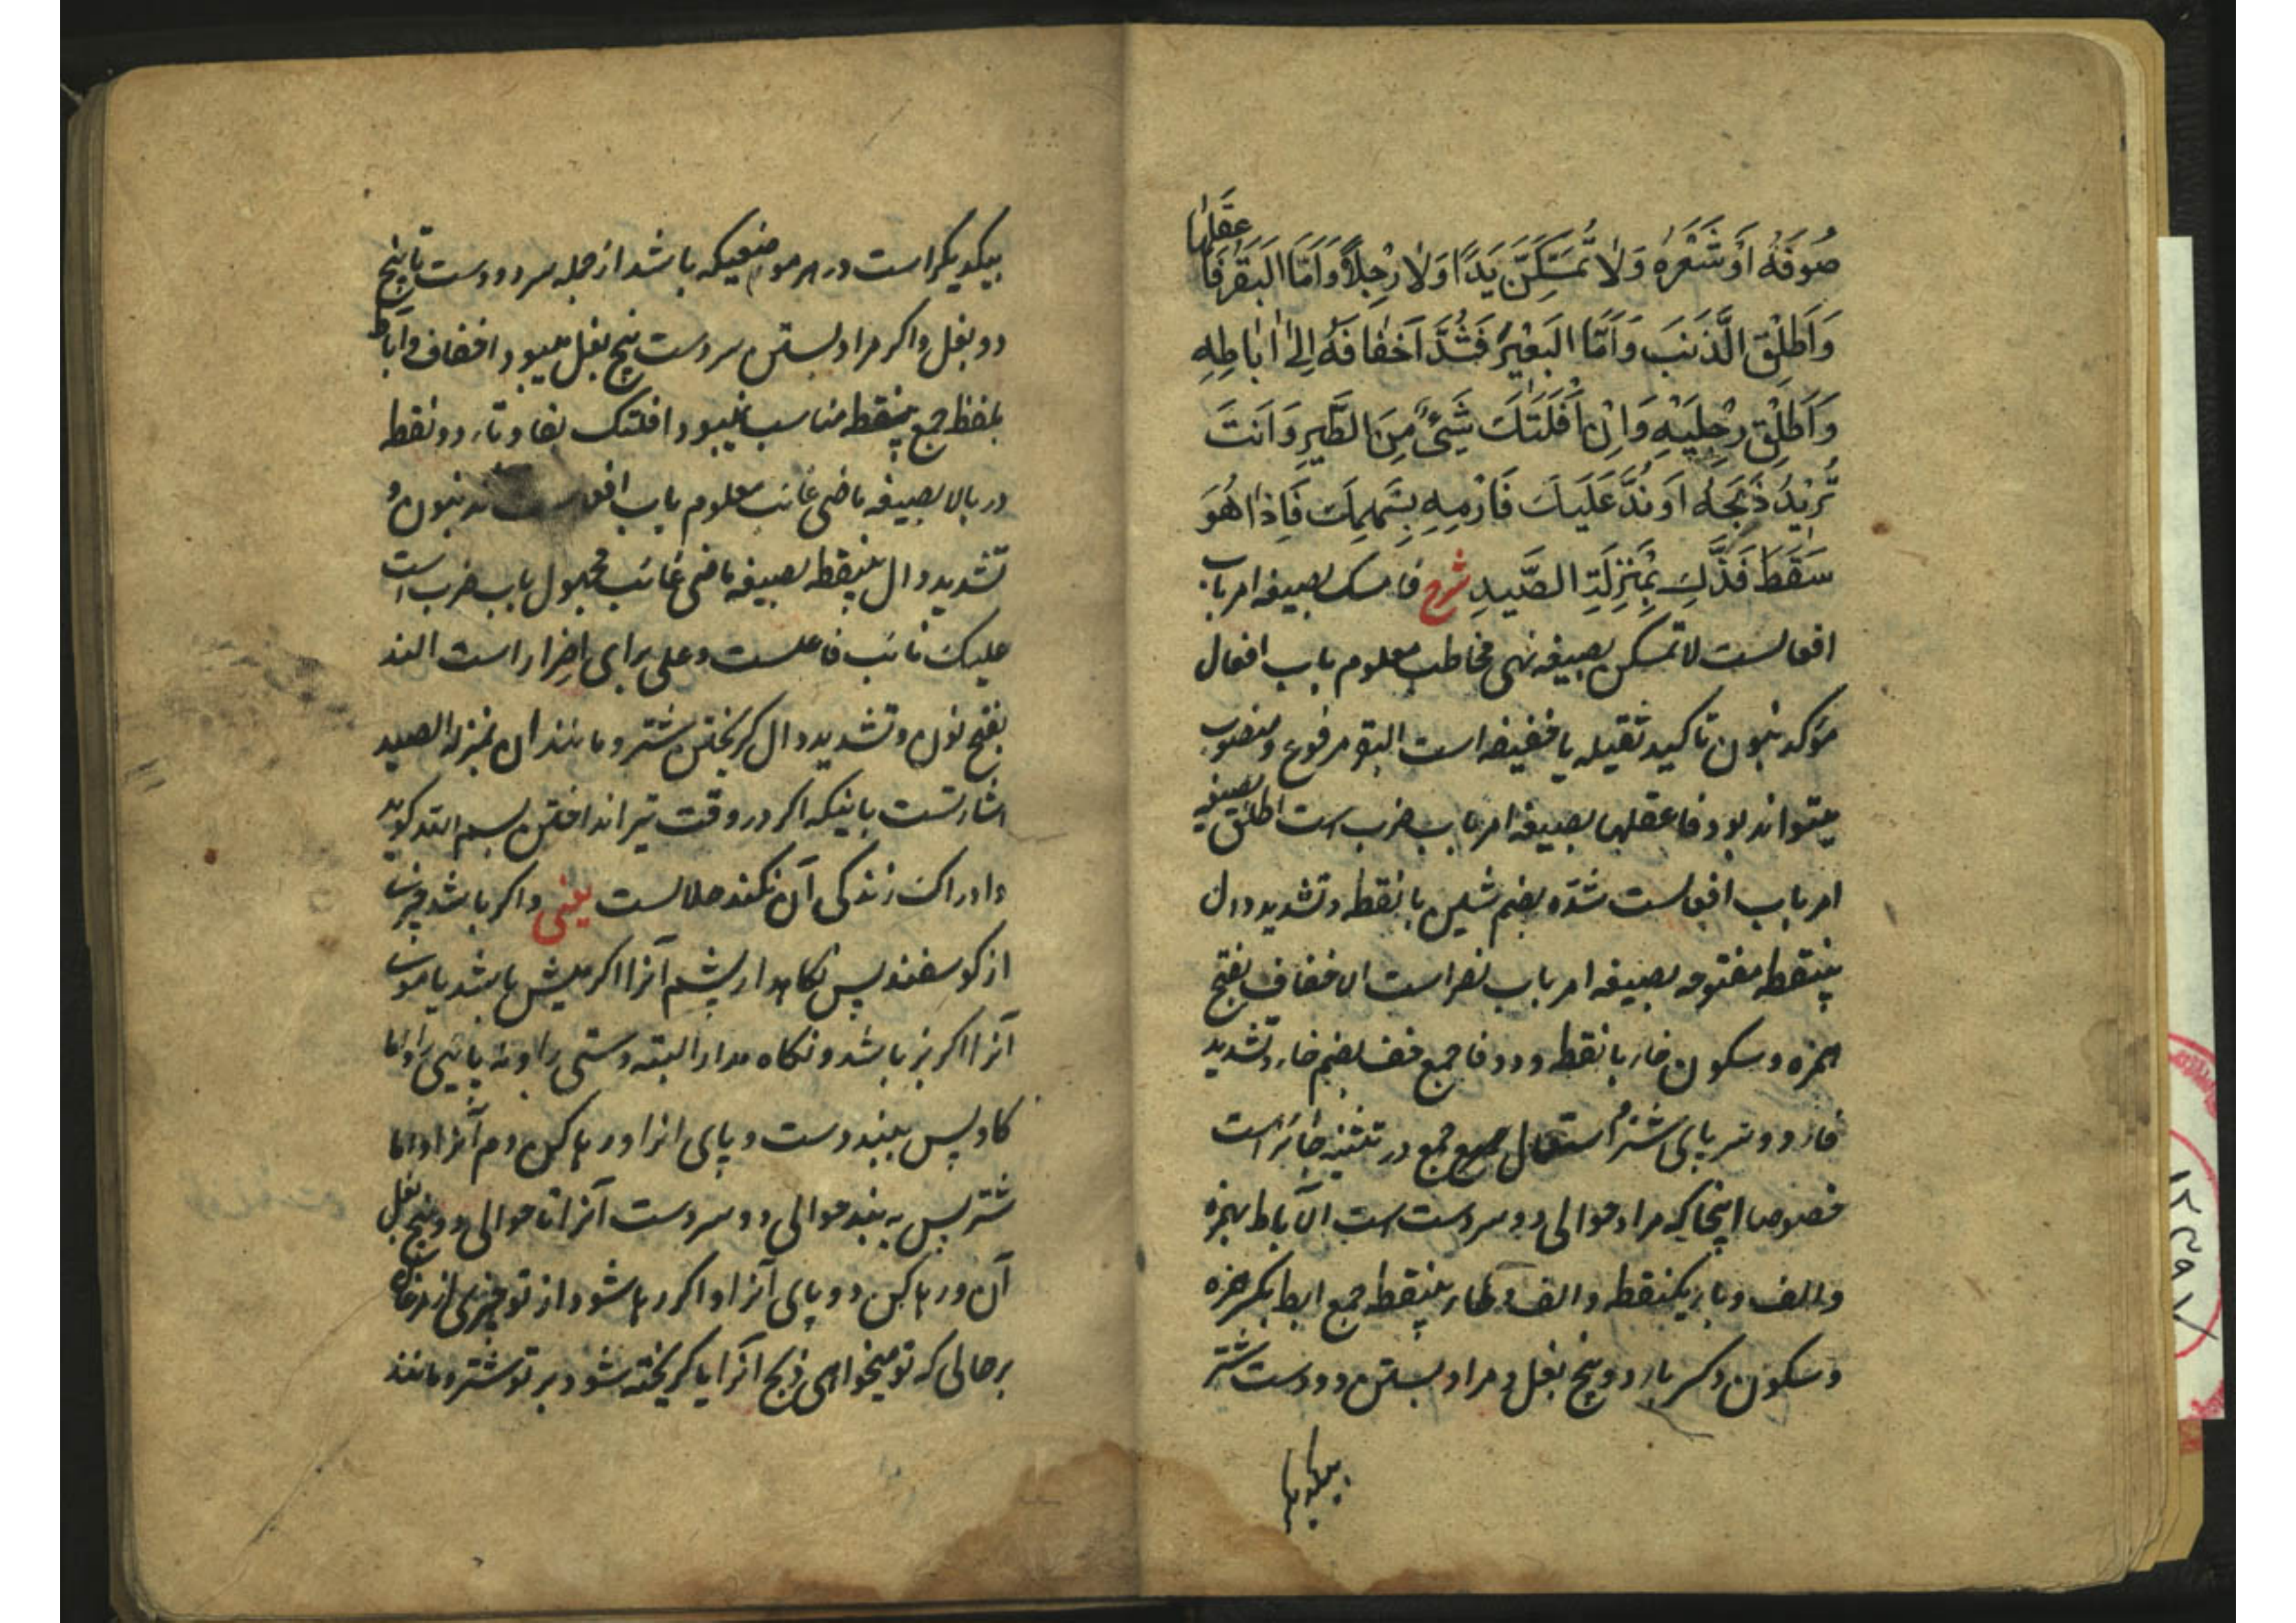 صُوفَهُ اَوْ شَعْرَهُ وَلَا تُمْسِكَنَّ يَدًا وَلَا رِجْلًا وَاَمَّا الْبَقَرُ فَا
عقلها
وَاَطْلِقِ الذَّنَبَ وَاَمَّا الْبَعِيْرُ فَشُدَّ اَخْفَافَهُ اِلٰى اٰبَاطِهِ
وَاَطْلِقْ رِجْلَيْهِ وَاِنْ اَفْلَتَكَ شَيْءٌ مِنَ الطَّيْرِ وَاَنْتَ
تُرِيْدُ ذَبْحَهُ اَوْ نَدَّ عَلَيْكَ فَارْمِهِ بِسَهْمِكَ فَاِذَا هُوَ
سَقَطَ فَذٰلِكَ بِمَنْزِلَةِ الصَّيْدِ شرح فامسک بصیغه امر باب
افعالست لا تمسکن بصیغه نهی مخاطب معلوم باب افعال
مؤکد بنون تاکید ثقیله یا خفیفه است البقر مرفوع و منصوب
میتواند بود فاعقلها بصیغه امر باب ضرب است اطلق بصیغه
امر باب افعالست شدّ بضم شین با نقطه و تشدید دال
بینقطه مفتوحه بصیغه امر باب نصر است الاخفاف بفتح
همزه و سکون خاء با نقطه و دو فا جمع خف بضم خاء و تشدید
فاء دو سر پای شتر و استعمال جمع در تثنیه جائز است
خصوصا اینجا که مراد حوالی دو سر دست است الآباط بهمزه
و الف و باء یکنقطه و الف و طاء بینقطه جمع ابط بکسر همزه
و سکون و کسر باء دو بیخ بغل و مراد بستن دو دست شتر
بیکدیگر
بیکدیگر است در هر موضعیکه باشد از جمله سر دو دست تا بیخ
دو بغل و اگر مراد بستن سر دست بیخ بغل میبود اخفاف و آباط
بلفظ جمع بینقطه مناسب نمیبود افلتک بفا و تاء دو نقطه
در بالا بصیغه ماضی غائب معلوم باب ند بنون و
تشدید دال بینقطه بصیغه ماضی غائب مجهول باب ضرب است
علیک نائب فاعلست و علی برای اضرار است الند
بفتح نون و تشدید دال گریختن شتر و مانند ان بمنزله الصید
اشارتست باینکه اگر در وقت تیر انداختن بسم الله گوید
و ادراک زندگی آن نکند حلالست یعنی و اگر باشد چیزی
از گوسفند پس نگاهدار پشم آنرا اگر میش باشد یا موی
آنرا اگر بز باشد و نگاه مدار البته دستی را و نه پایی را و اما
گاو پس ببند دست و پای انرا و رها کن دم آنرا و اما
شتر پس به بند حوالی دو سر دست آنرا تا حوالی دو بیخ بغل
آن و رها کن دو پای آنرا و اگر رها شود از تو چیزی از مرغان
بر حالی که تو میخواهی ذبح آنرا یا گریخته شود بر تو شتر و مانند
۱۲۳۹۷